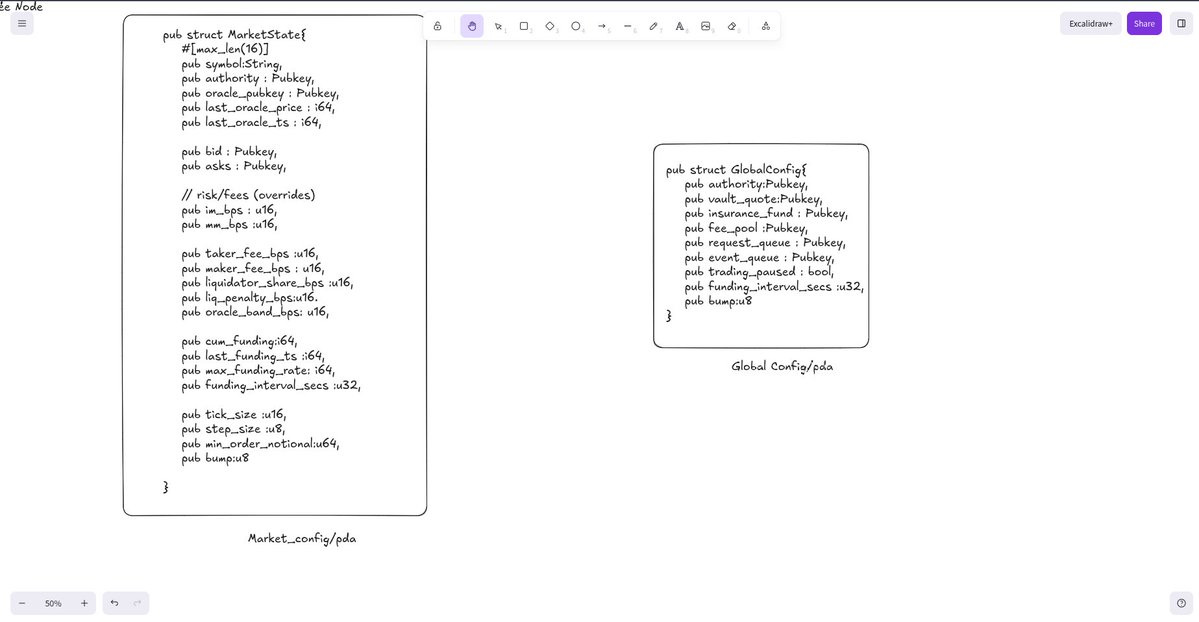 ee Node
Excalidraw+
Share
pub struct MarketState{
#[max_len(16)]
pub symbol:String,
pub authority : Pubkey,
pub oracle_pubkey : Pubkey,
pub last_oracle_price : i64,
pub last_oracle_ts : i64,
pub bid : Pubkey,
pub asks : Pubkey,
// risk/fees (overrides)
pub im_bps : u16,
pub mm_bps :u16,
pub taker_fee_bps :u16,
pub maker_fee_bps : u16,
pub liquidator_share_bps :u16,
pub liq_penalty_bps:u16.
pub oracle_band_bps: u16,
pub cum_funding:i64,
pub last_funding_ts :i64,
pub max_funding_rate: i64,
pub funding_interval_secs :u32,
pub tick_size :u16,
pub step_size :u8,
pub min_order_notional:u64,
pub bump:u8
}
Market_config/pda
pub struct GlobalConfig{
pub authority:Pubkey,
pub vault_quote:Pubkey,
pub insurance_fund : Pubkey,
pub fee_pool :Pubkey,
pub request_queue : Pubkey,
pub event_queue : Pubkey,
pub trading_paused : bool,
pub funding_interval_secs :u32,
pub bump:u8
}
Global Config/pda
50%